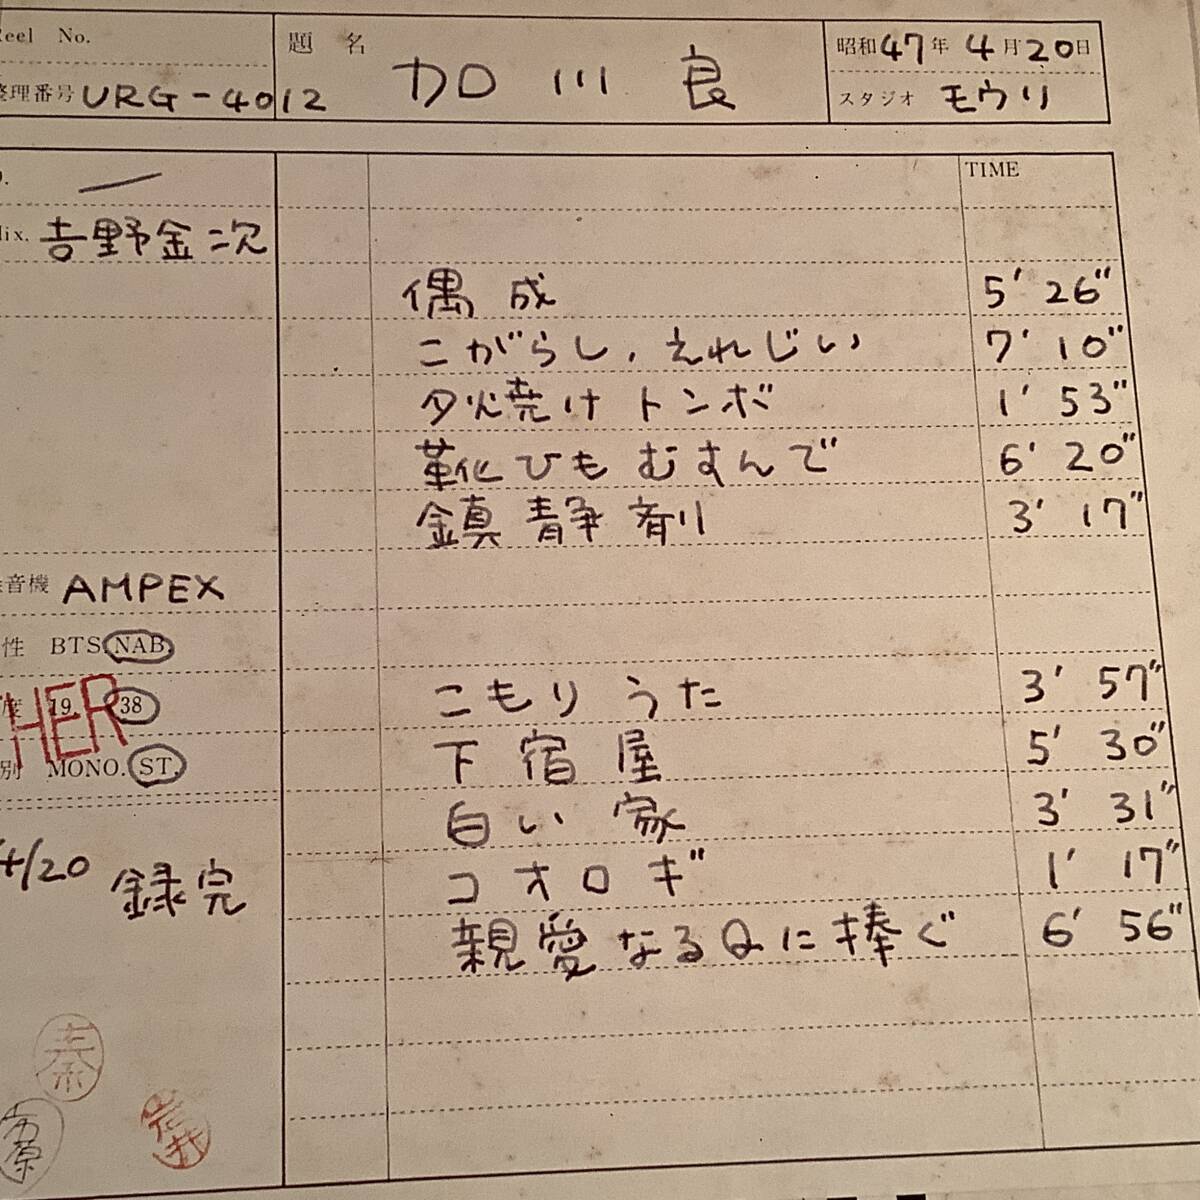 Reel No.
整理番号 URG-4012
題名 加川良
昭和47年4月20日
スタジオ モウリ
TIME
Mix. 吉野金次
偶成 5' 26"
こがらし，えれじい 7' 10"
夕焼けトンボ 1' 53"
靴ひもむすんで 6' 20"
鎮静剤 3' 17"
録音機 AMPEX
性 BTS. NAB.
こもりうた 3' 57"
度 19. 38
HER
下宿屋 5' 30"
別 MONO. ST.
白い家 3' 31"
コオロギ 1' 17"
4/20 録完
親愛なるQに捧ぐ 6' 56"
秦